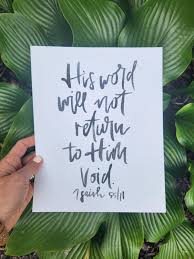 His word
will not
return
to Him
void.
Isaiah 55:11